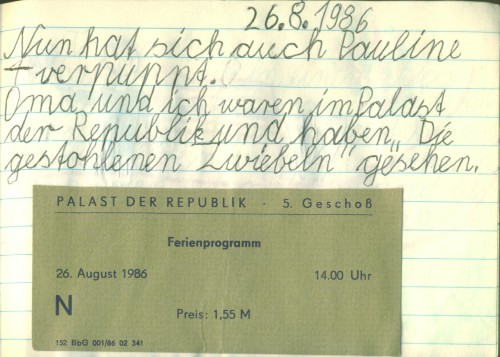 26.8.1986
Nun hat sich auch Pauline
+ verpuppt.
Oma und ich waren im Palast
der Republik und haben „Die
gestohlenen Zwiebeln" gesehen.
PALAST DER REPUBLIK · 5. Geschoß
Ferienprogramm
26. August 1986 14.00 Uhr
N
Preis: 1,55 M
152 BbG 001/86 02 341